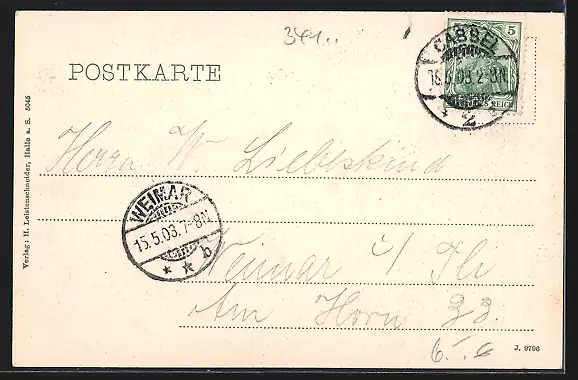 341..
5
REICH
CASSEL
15.5.03.2-3N
* 2 *
POSTKARTE
Herrn W Liebeskind
WEIMAR
15.5.03.7-8N
* * b
Weimar i/Th
Am Horn 23.
Verlag: H. Loistenschneider, Halle a. S. 5045
J. 9796